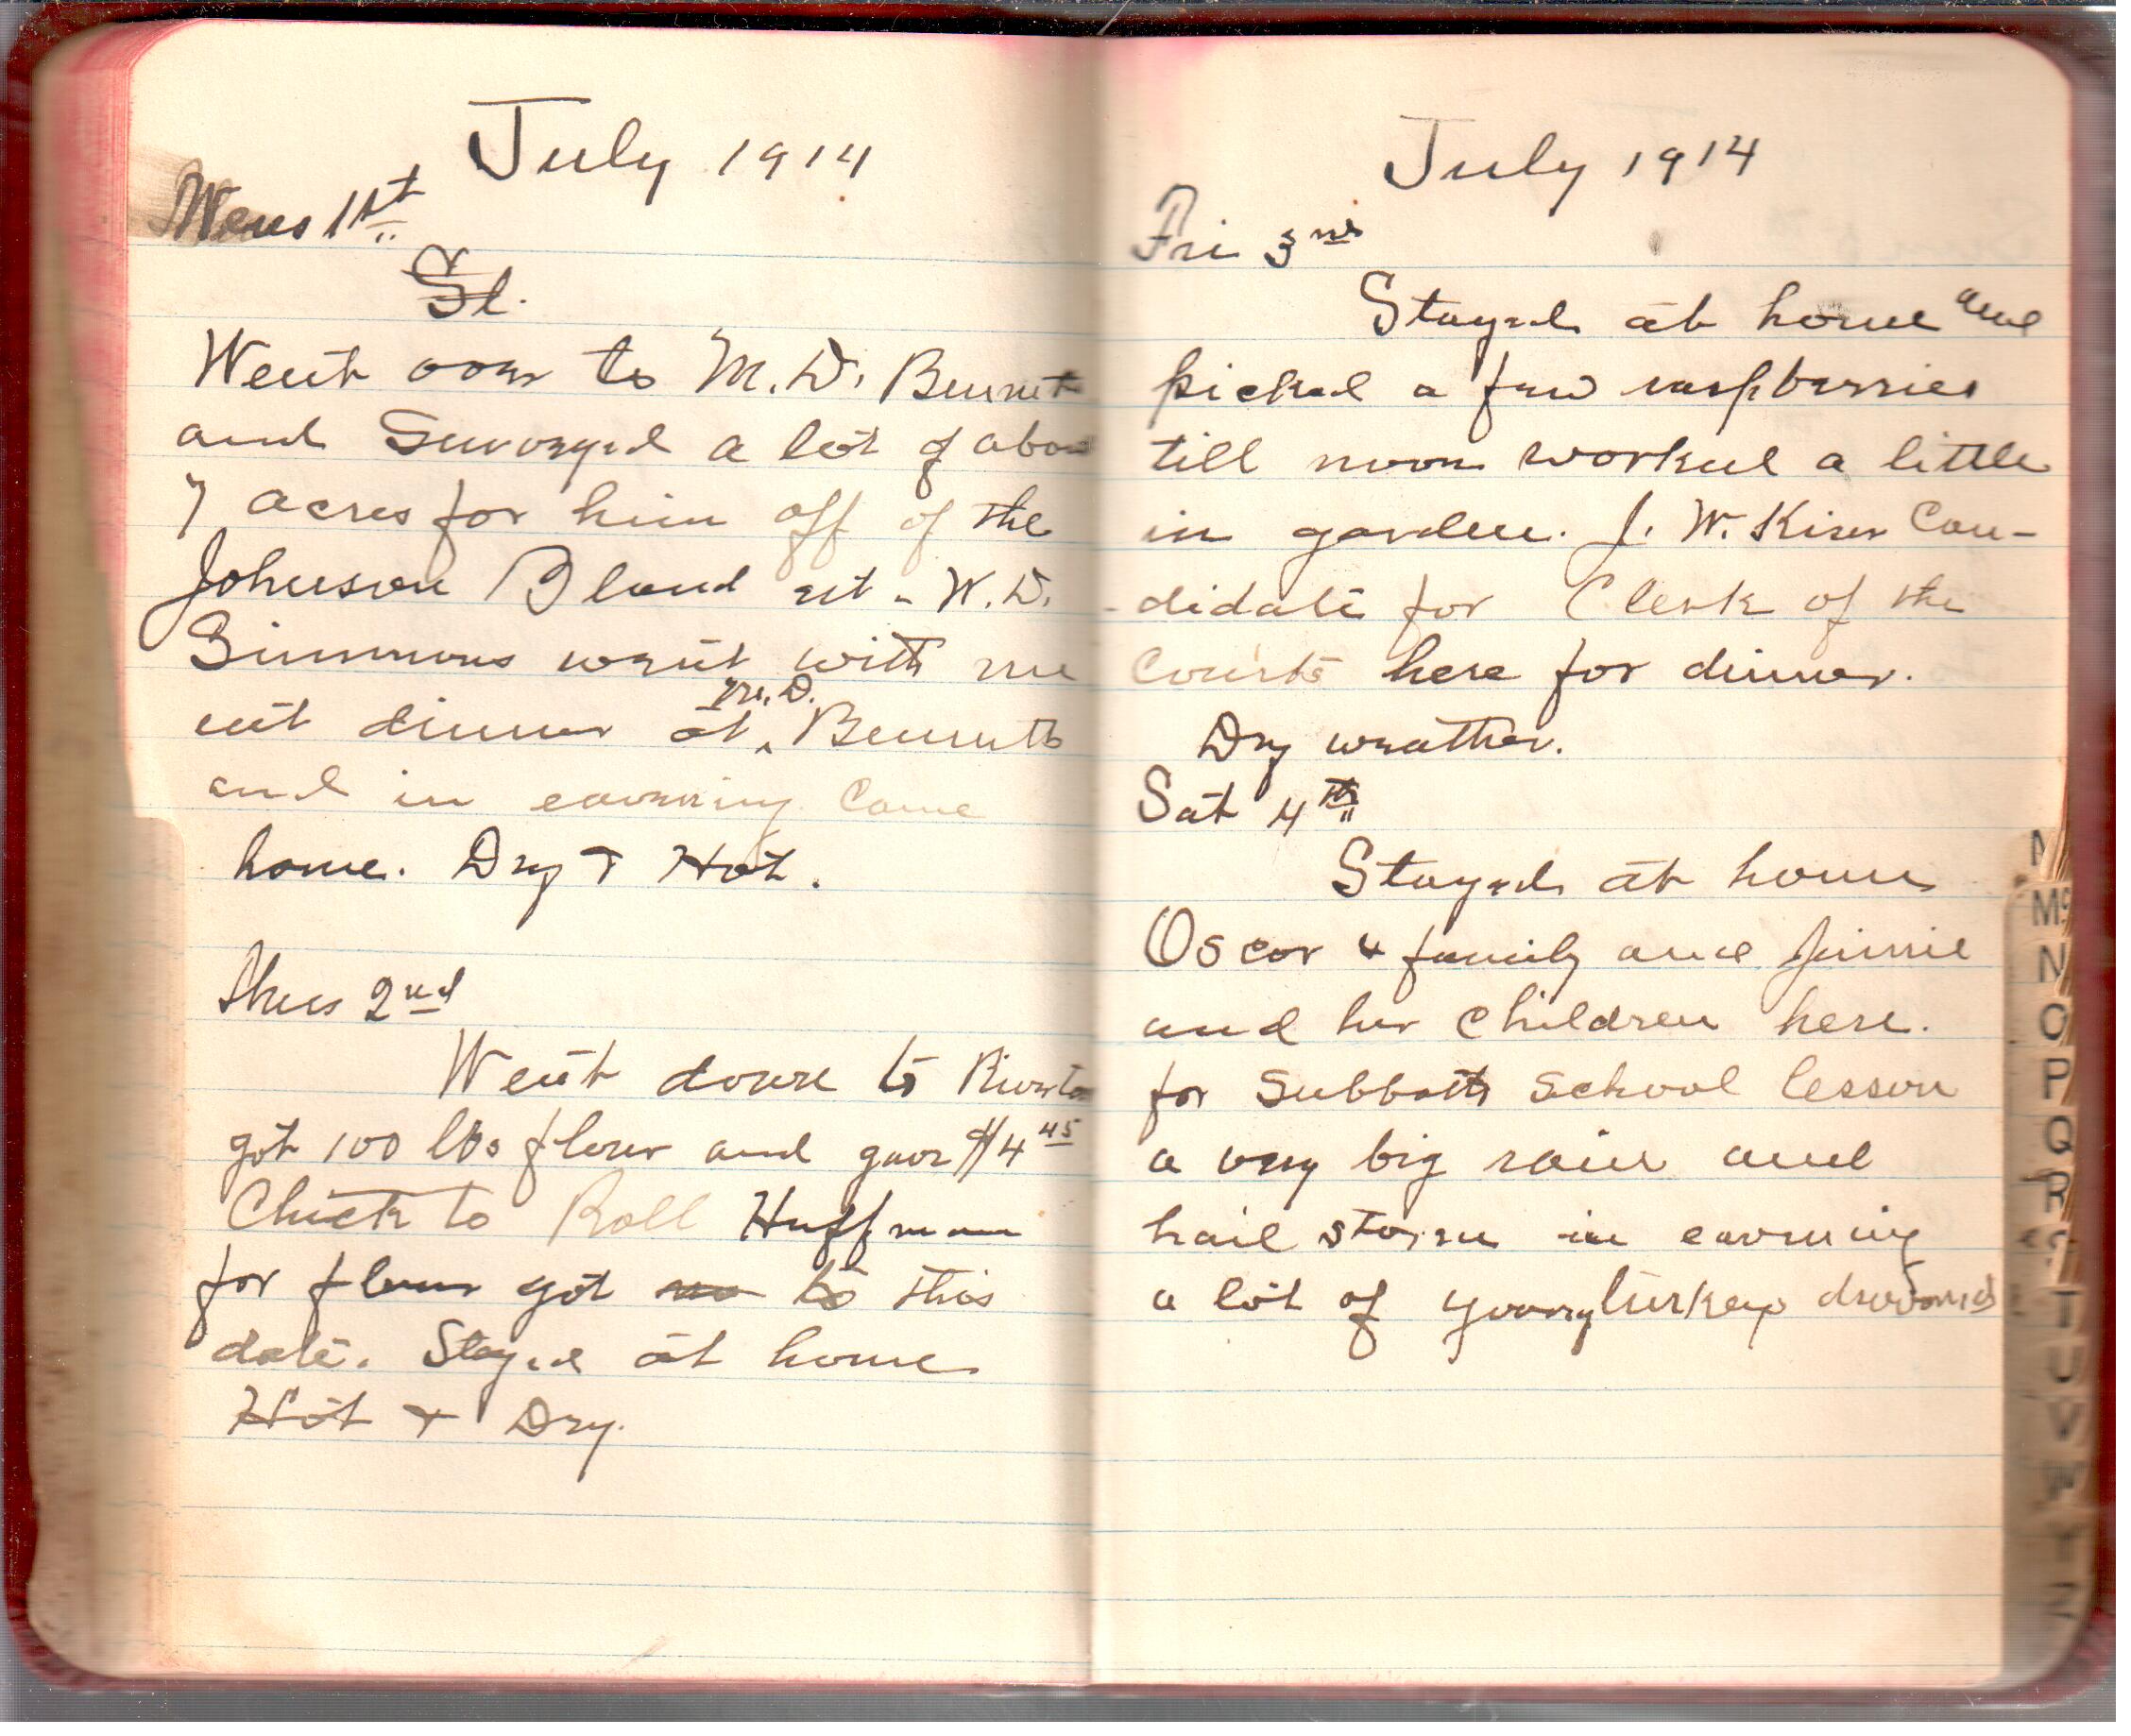 July 1914
Wens 1st
St.
Went over to M. D. Bennett
and Surveyed a lot of about
7 acres for him off of the
Johnson Bland est - W. D.
Simmons went with me
eat dinner at M. D. Bennetts
and in eavening Came
home. Dry & Hot.
Thus 2nd
Went down to Riverton
got 100 lbs flour and gave $4 45
Check to Roll Huffman
for flour got to this
date. Stayed at home
Hot & Dry.
July 1914
Fri 3rd
Stayed at home and
picked a few raspberries
till noon worked a little
in garden. J. W. Kiser Can-
-didate for Clerk of the
Courts here for dinner.
Dry weather.
Sat 4th
Stayed at home
Oscar & family and Jinnie
and her Children here.
for Subbath School lesson
a very big rain and
hail storm in eavening
a lot of young turkeys drowned
M
Mc
N
O
P
Q
R
T
U
V